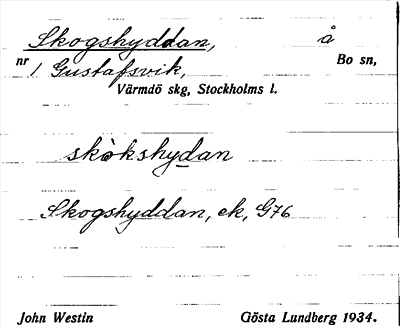 Skogshyddan, å
nr 1 Gustafsvik, Bo sn,
Värmdö skg, Stockholms l.
skòkshydan
Skogshyddan, ek, G76
John Westin Gösta Lundberg 1934.